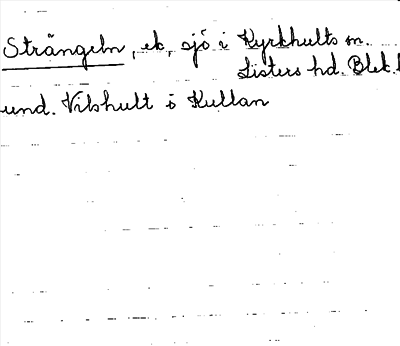 Strängeln, ek, sjö i Kyrkhults sn.
Listers hd. Blek.l
und. Vilshult ö Kullan